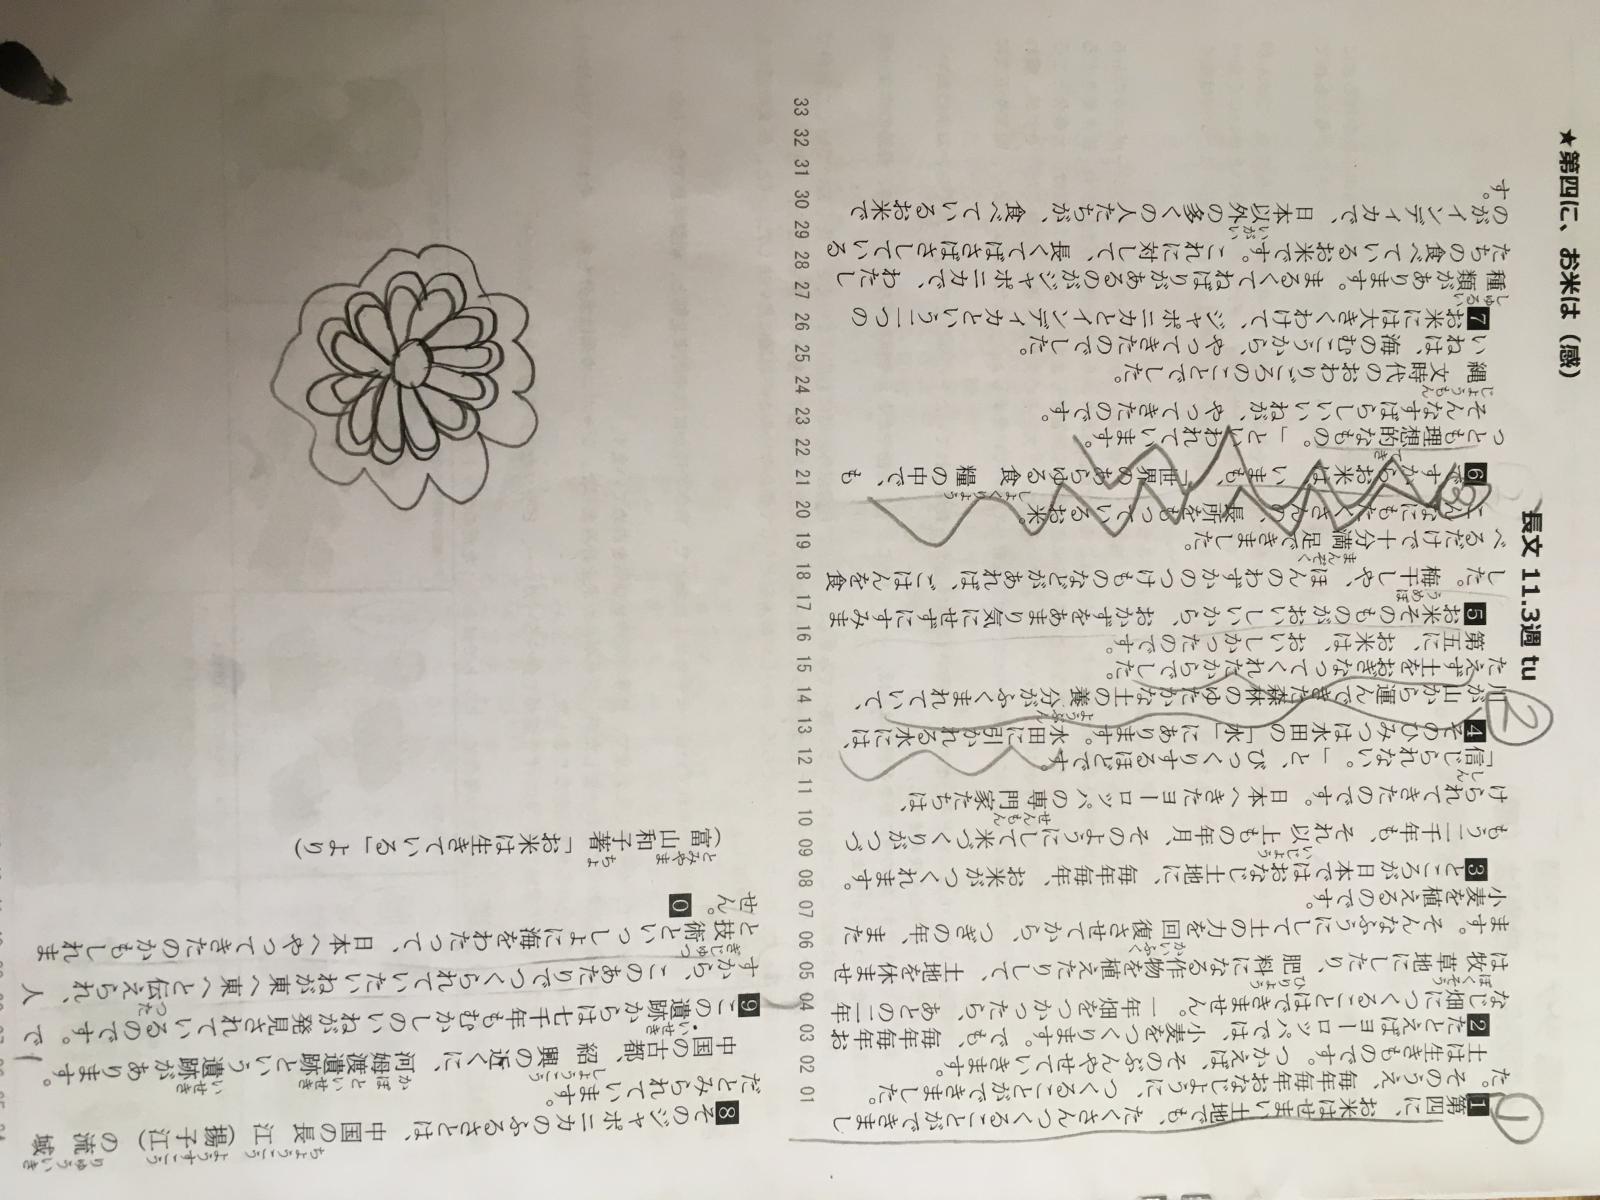 ★第四に、お米は（感）
長文 11.3週 tu
①
1第四に、お米はせまい土地でも、たくさんつくることができまし
た。そのうえ、毎年毎年おなじように、つくることができました。
土は生きものです。つかえば、そのぶんやせていきます。
2たとえばヨーロッパでは、小麦をつくります。でも、毎年毎年お
なじ畑につくることはできません。一年畑をつかったら、あとの二年
は牧草地にしたり、肥料になる作物を植えたりして、土地を休ませ
ます。そんなふうにして土の力を回復させてから、つぎの年、また
小麦を植えるのです。
3ところが日本ではおなじ土地に、毎年毎年、お米がつくれます。
もう二千年も、それ以上もの年月、そのようにして米づくりがつづ
けられてきたのです。日本へきたヨーロッパの専門家たちは、
「信じられない。」と、びっくりするほどです。
②
4そのひみつは水田の「水」にあります。水田に引かれる水には、
川が山から運んできた森林のゆたかな土の養分がふくまれていて、
たえず土をおぎなってくれたからでした。
第五に、お米は、おいしかったのです。
5お米そのものがおいしいから、おかずをあまり気にせずにすみま
した。梅干しや、ほんのわずかのつけものなどがあれば、ごはんを食
べるだけで十分満足できました。
こんなにもたくさんの、長所をもっているお米。
6ですからお米は、いまも、「世界のあらゆる食糧の中で、も
っとも理想的なもの。」といわれています。
そんなすばらしいいねが、やってきたのです。
縄文時代のおわりごろのことでした。
いねは、海のむこうから、やってきたのでした。
7お米には大きくわけて、ジャポニカとインディカという二つの
種類があります。まるくてねばりがあるのがジャポニカで、わたし
たちの食べているお米です。これに対して、長くてぱさぱさしている
のがインディカで、日本以外の多くの人たちが、食べているお米で
す。
01 02 03 04 05 06 07 08 09 10 11 12 13 14 15 16 17 18 19 20 21 22 23 24 25 26 27 28 29 30 31 32 33
8そのジャポニカのふるさとは、中国の長江（揚子江）の流域
だとみられています。
中国の古都、紹興の近くに、河姆渡遺跡という遺跡があります。
9この遺跡からは七千年もむかしのいねが発見されているのです。で
すから、このあたりでつくられていたいねが東へ東へと伝えられ、人
と技術といっしょに海をわたって、日本へやってきたのかもしれま
せん。0
（富山和子著「お米は生きている」より）